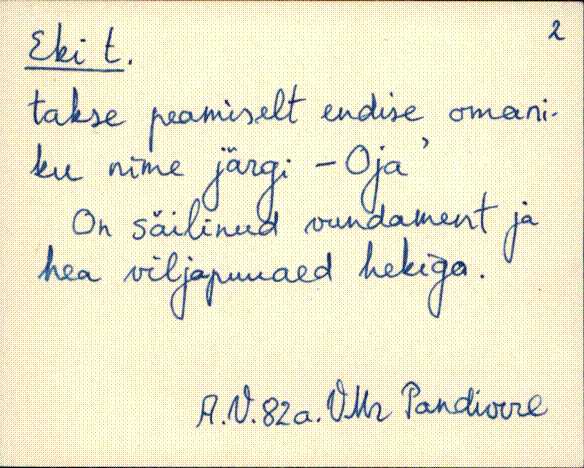 2
Eki t.
takse peamiselt endise omani-
ku nime järgi - Oja'
On säilinud vundament ja
hea viljapuuaed hekiga.
A.V. 82a. VMr Pandivere